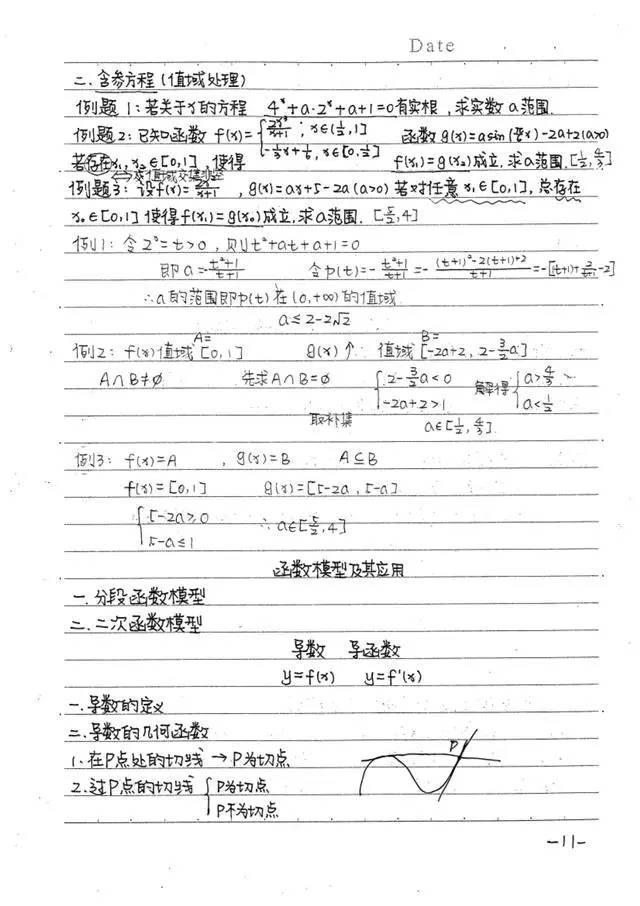 Date
二.含参方程(值域处理)
例题1:若关于x的方程 4^x+a·2^x+a+1=0有实根,求实数a范围.
例题2:已知函数 f(x)={ , x∈(½,1] 函数g(x)=asin( x)-2a+2(a>0)
-⅓x+⅙, x∈[0,½]
若存在x₁,x₂∈[0,1],使得 f(x₁)=g(x₂)成立,求a范围.[½,4/3]
⇔求值域交集
例题3:设f(x)= , g(x)=ax+5-2a(a>0) 若对任意x₁∈[0,1],总存在
x₀∈[0,1]使得f(x₁)=g(x₀)成立,求a范围. [5/2,4]
例1:令2^x=t>0,则t²+at+a+1=0
即a=-(t²+1)/(t+1) 令φ(t)=-(t²+1)/(t+1)=-((t+1)²-2(t+1)+2)/(t+1)=-[(t+1)+2/(t+1)-2]
∴a的范围即φ(t)在(0,+∞)的值域
a≤2-2√2
例2:f(x)值域A=[0,1] g(x)↑ 值域B=[-2a+2, 2-3/2a]
A∩B≠∅ 先求A∩B=∅ {2-3/2a<0 解得{a>4/3
-2a+2>1 a<½
取补集 a∈[½,4/3]
例3:f(x)=A , g(x)=B A⊆B
f(x)=[0,1] g(x)=[5-2a,5-a]
{5-2a≥0 ∴a∈[5/2,4]
5-a≤1
函数模型及其应用
一.分段函数模型
二.二次函数模型
导数 导函数
y=f(x) y=f'(x)
一.导数的定义
二.导数的几何函数
1.在P点处的切线→P为切点
P
2.过P点的切线{P为切点
P不为切点
-11-